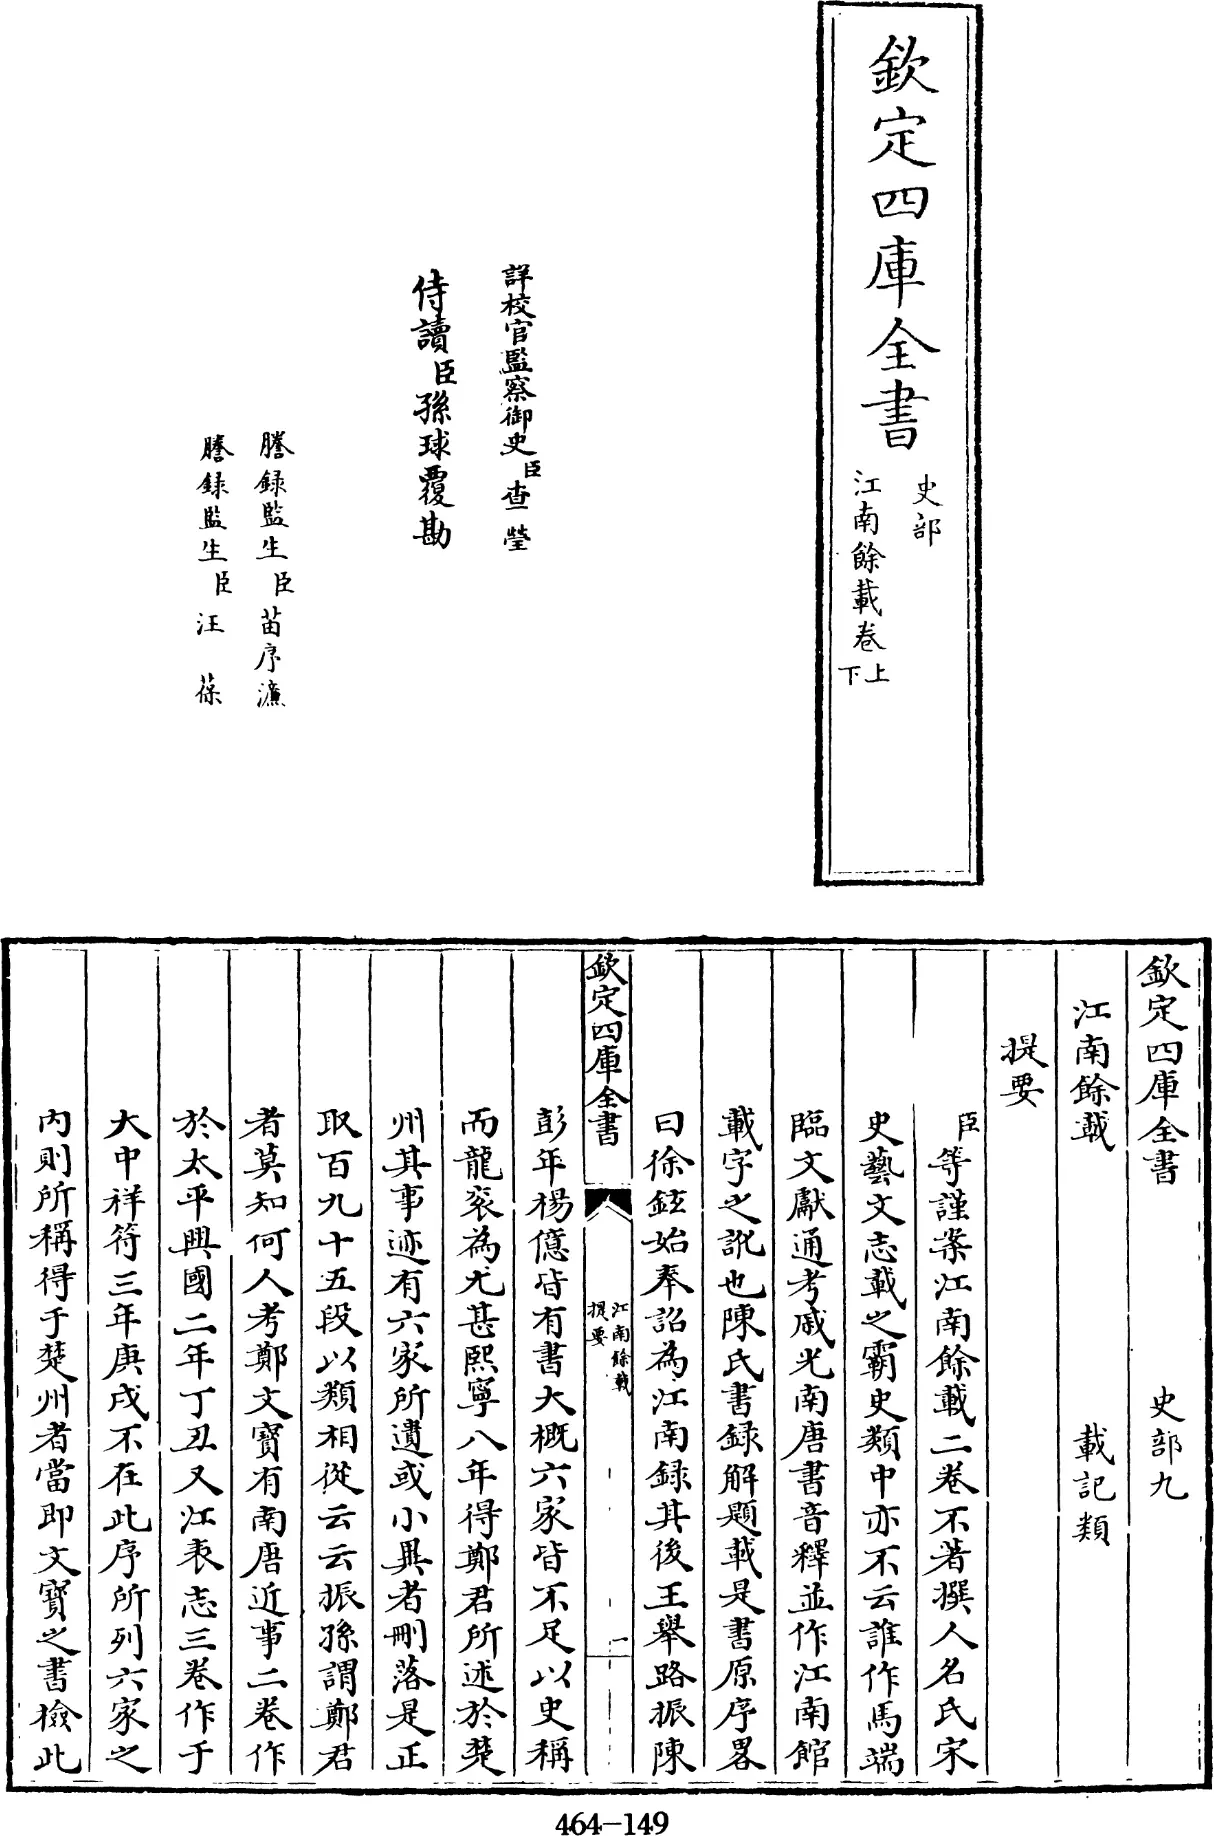 欽定四庫全書
史部
江南餘載卷上
下
詳校官監察御史臣查瑩
侍讀臣孫球覆勘
謄録監生臣苗序濂
謄録監生臣汪葆
欽定四庫全書 史部九
江南餘載 載記類
提要
臣等謹案江南餘載二卷不著撰人名氏宋
史藝文志載之霸史類中亦不云誰作馬端
臨文獻通考戚光南唐書音釋並作江南館
載字之訛也陳氏書録解題載是書原序畧
曰徐鉉始奉詔為江南録其後王舉路振陳
欽定四庫全書
江南餘載
提要
一
彭年楊億皆有書大概六家皆不足以史稱
而龍衮為尤甚熙寧八年得鄭君所述於楚
州其事迹有六家所遺或小異者刪落是正
取百九十五段以類相從云云振孫謂鄭君
者莫知何人考鄭文寶有南唐近事二卷作
於太平興國二年丁丑又江表志三卷作于
大中祥符三年庚戌不在此序所列六家之
内則所稱得于楚州者當即文寶之書撿此
464-149